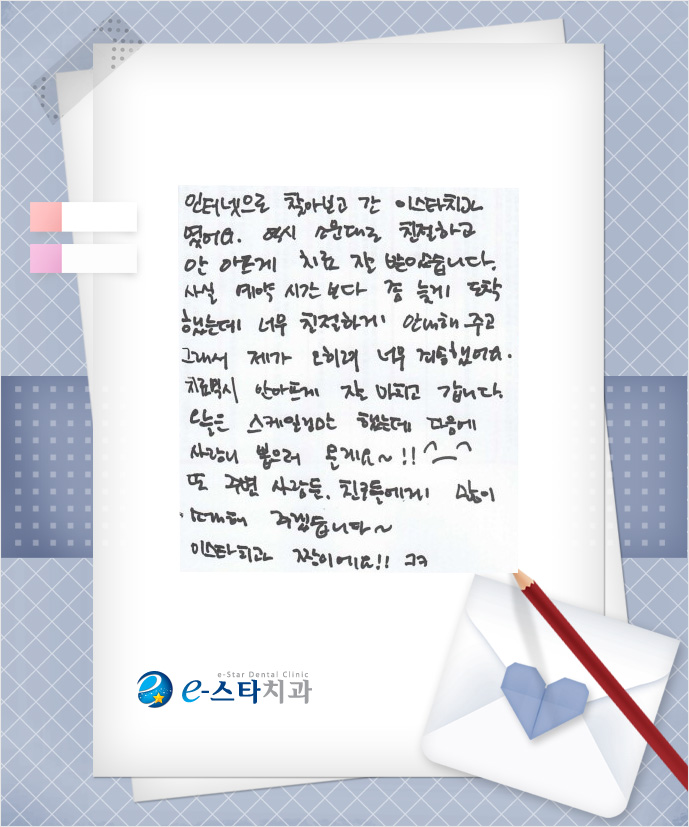 인터넷으로 찾아보고 간 이스타치과
였어요. 역시 소문대로 친절하고
안 아프게 치료 잘 받았습니다.
사실 예약 시간 보다 좀 늦게 도착
했는데 너무 친절하게 안내해 주고
그래서 제가 오히려 너무 죄송했어요.
치료역시 안아프게 잘 마치고 갑니다.
오늘은 스케일링만 했는데 다음에
사랑니 뽑으러 올게요~!! ^_^
또 주변 사람들, 친구들에게 많이
소개해 주겠습니다~
이스타치과 짱이에요!! ㅋㅋ
e-Star Dental Clinic
e-스타치과